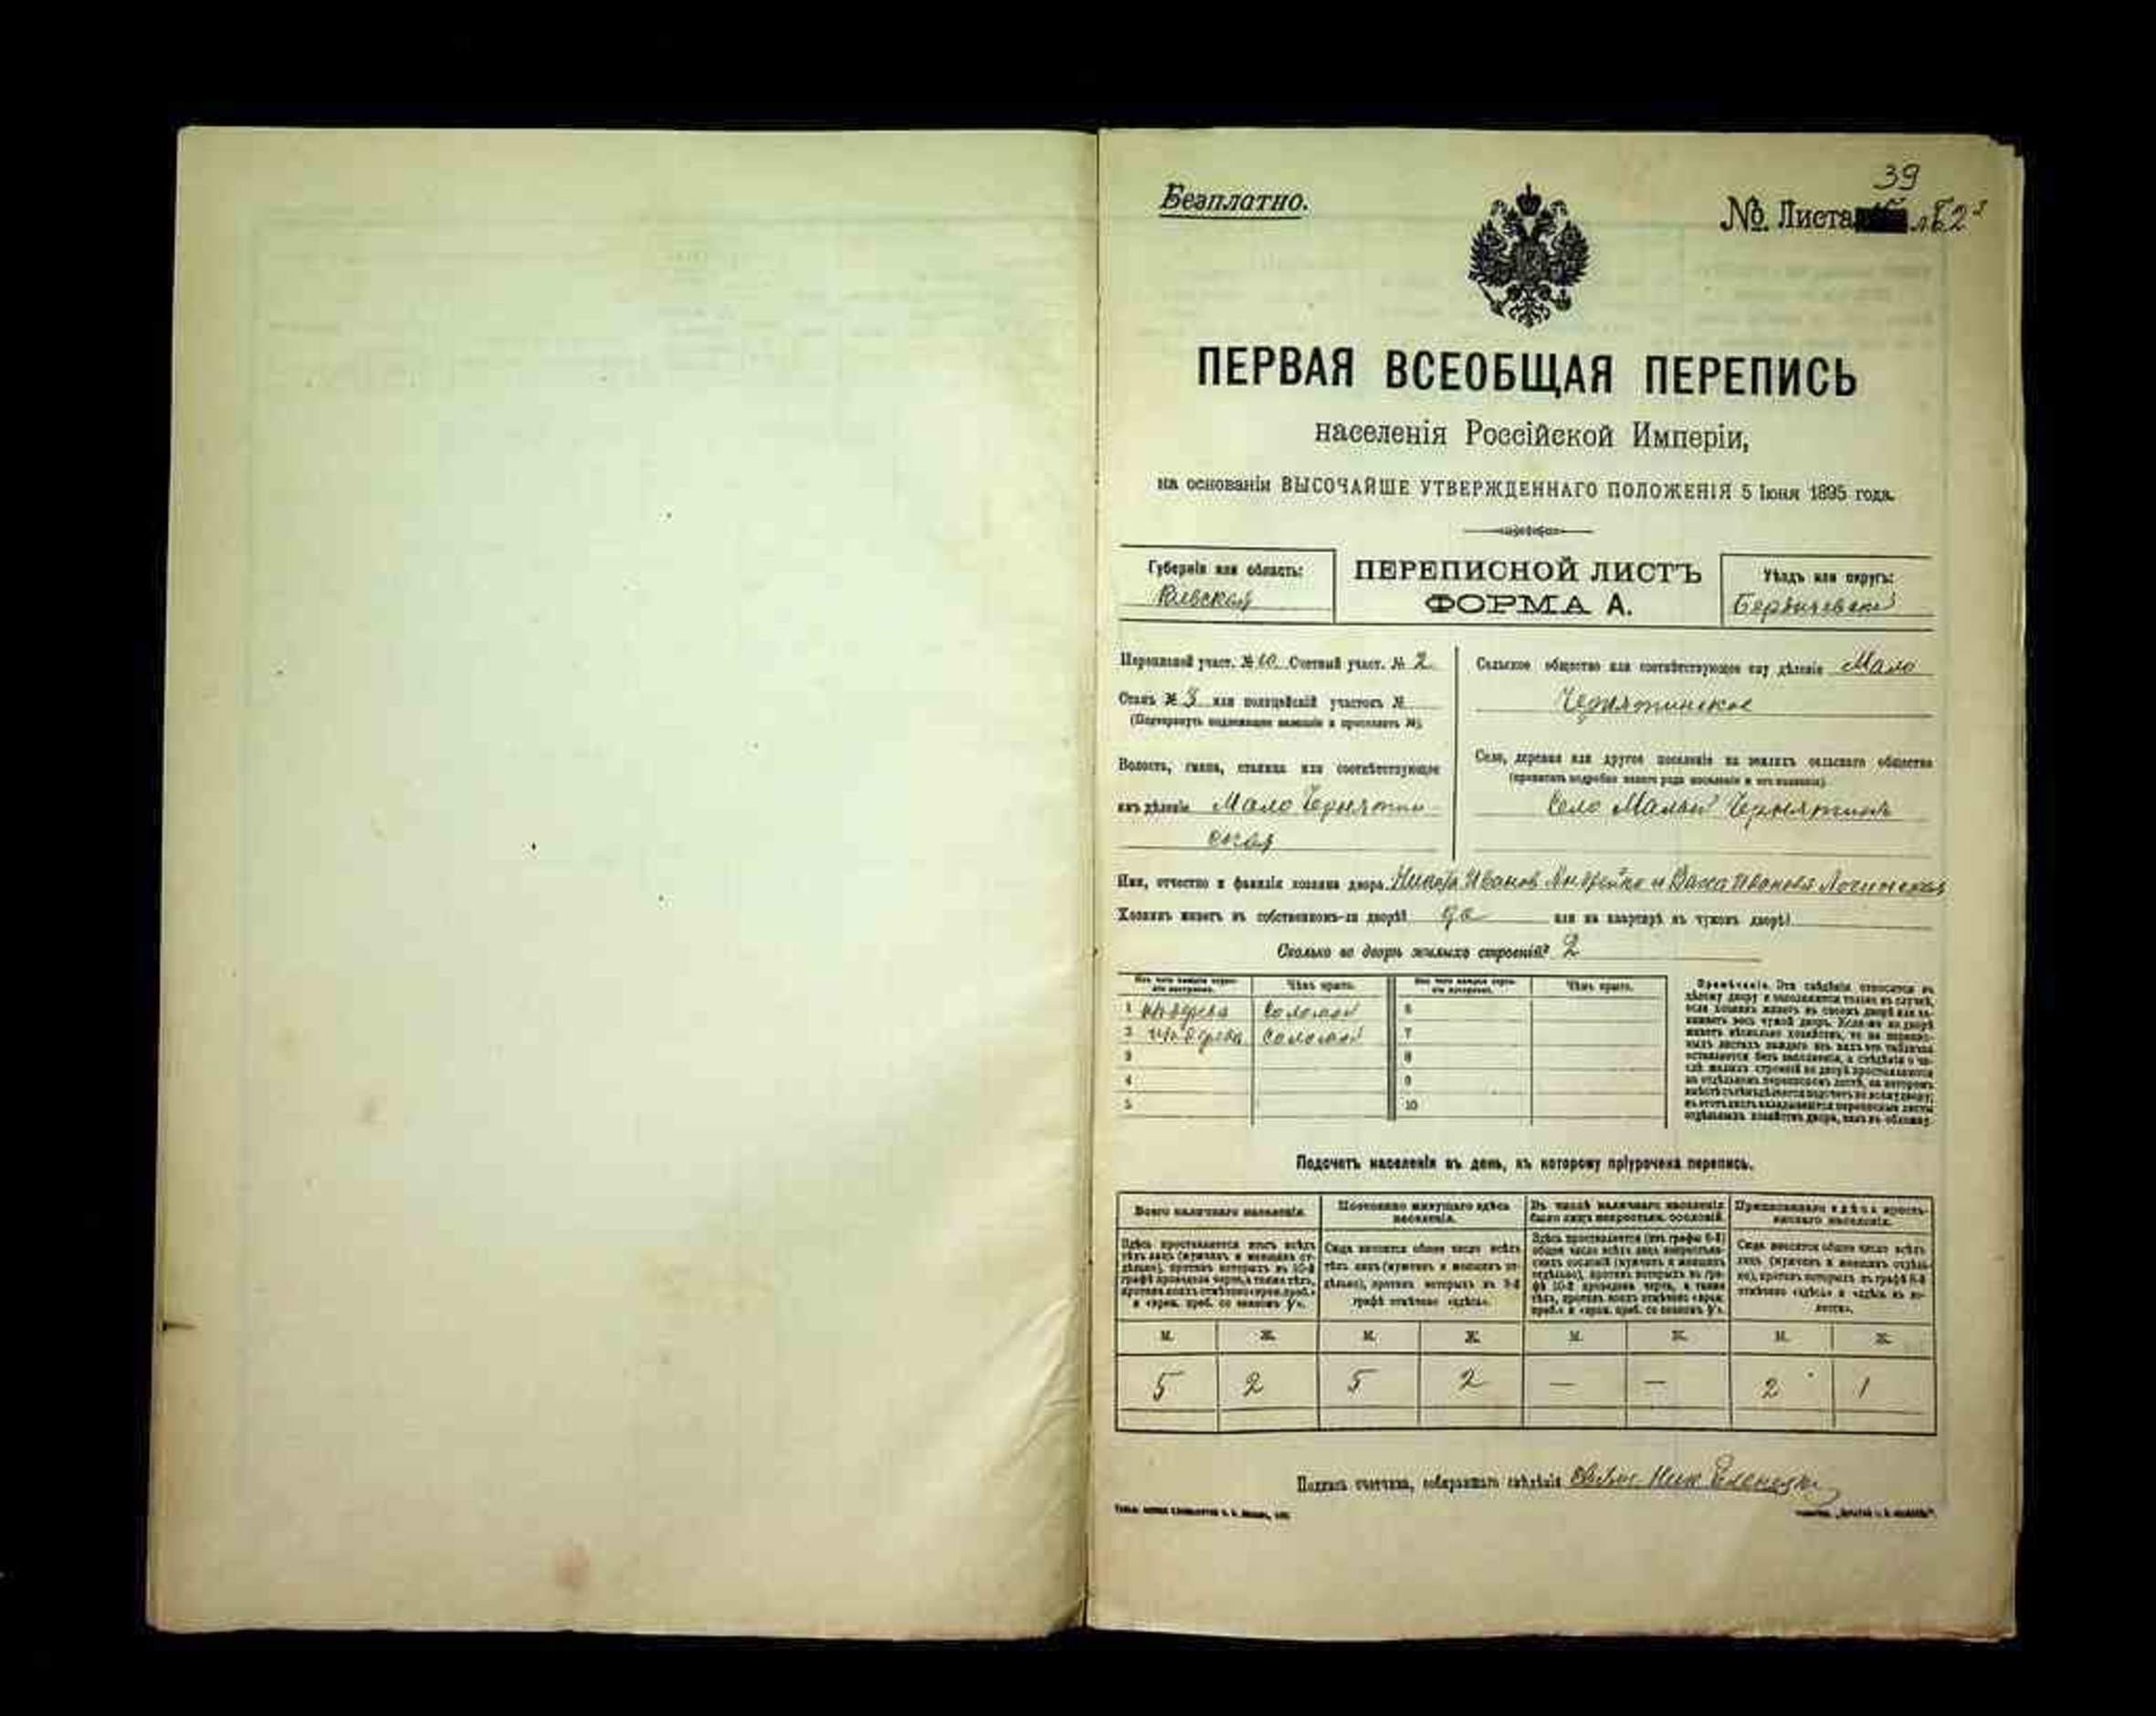 39
Безплатно.
№ Листа
ПЕРВАЯ ВСЕОБЩАЯ ПЕРЕПИСЬ
населенія Россійской Имперіи,
на основаніи ВЫСОЧАЙШЕ УТВЕРЖДЕННАГО ПОЛОЖЕНІЯ 5 Іюня 1895 года.
Губернія или область:
Кіевская
ПЕРЕПИСНОЙ ЛИСТЪ
ФОРМА А.
Уѣздъ или округъ:
Бердичевскій
Переписной участ. № 10 Счетный участ. № 2
Станъ № 3 или полицейскій участокъ №
(Подчеркнуть подлежащее названіе и проставить №).
Волость, гмина, станица или соотвѣтствующее
имъ дѣленіе Мало Чернятин
ская
Сельское общество или соотвѣтствующее ему дѣленіе Мало
Чернятинское
Село, деревня или другое поселеніе на земляхъ сельскаго общества
(прописать подробно какого рода поселеніе и его названіе)
Село Малый Чернятинъ
Имя, отчество и фамилія хозяина двора Никита Иванов Андрейко и Васса Иванова
Хозяинъ живетъ въ собственномъ-ли дворѣ? да или на квартирѣ въ чужомъ дворѣ?
Сколько во дворѣ жилыхъ строеній? 2
Изъ чего каждое строеніе построено. Чѣмъ крыто. Изъ чего каждое строеніе построено. Чѣмъ крыто.
1 изъ дерева соломой 6
2 изъ дерева соломой 7
3 8
4 9
5 10
Примѣчаніе. Эти свѣдѣнія относятся къ
цѣлому двору и заполняются только въ случаѣ,
если хозяинъ живетъ въ своемъ дворѣ или за-
нимаетъ весь чужой дворъ. Если-же во дворѣ
живетъ нѣсколько хозяйствъ, то на перепис-
ныхъ листахъ каждаго изъ нихъ эта табличка
оставляется безъ заполненія, а свѣдѣнія о чи-
слѣ жилыхъ строеній во дворѣ проставляются
на отдѣльномъ переписномъ листѣ, на которомъ
отдѣльныхъ хозяйствъ двора, какъ въ обложку.
Подсчетъ населенія въ день, къ которому пріурочена перепись.
Всего наличнаго населенія.
Постоянно живущаго здѣсь населенія.
Въ числѣ наличнаго населенія было лицъ некрестьян. сословій.
Приписаннаго здѣсь крестьянскаго населенія.
Здѣсь проставляется итогъ всѣхъ
тѣхъ лицъ (мужчинъ и женщинъ от-
дѣльно), противъ которыхъ въ 10-й
графѣ проведена черта, а также тѣхъ,
противъ коихъ отмѣчено «врем. преб.»
Сюда вносится общее число всѣхъ
тѣхъ лицъ (мужчинъ и женщинъ от-
дѣльно), противъ которыхъ въ 9-й
графѣ отмѣчено «здѣсь».
Сюда вносится общее число всѣхъ
лицъ (мужчинъ и женщинъ отдѣль-
но), противъ которыхъ въ графѣ 8-й
отмѣчено «здѣсь» и «здѣсь въ во-
лости».
М. Ж. М. Ж. М. Ж. М. Ж.
5 2 5 2 — — 2 1
Подпись счетчика, собиравшаго свѣдѣнія